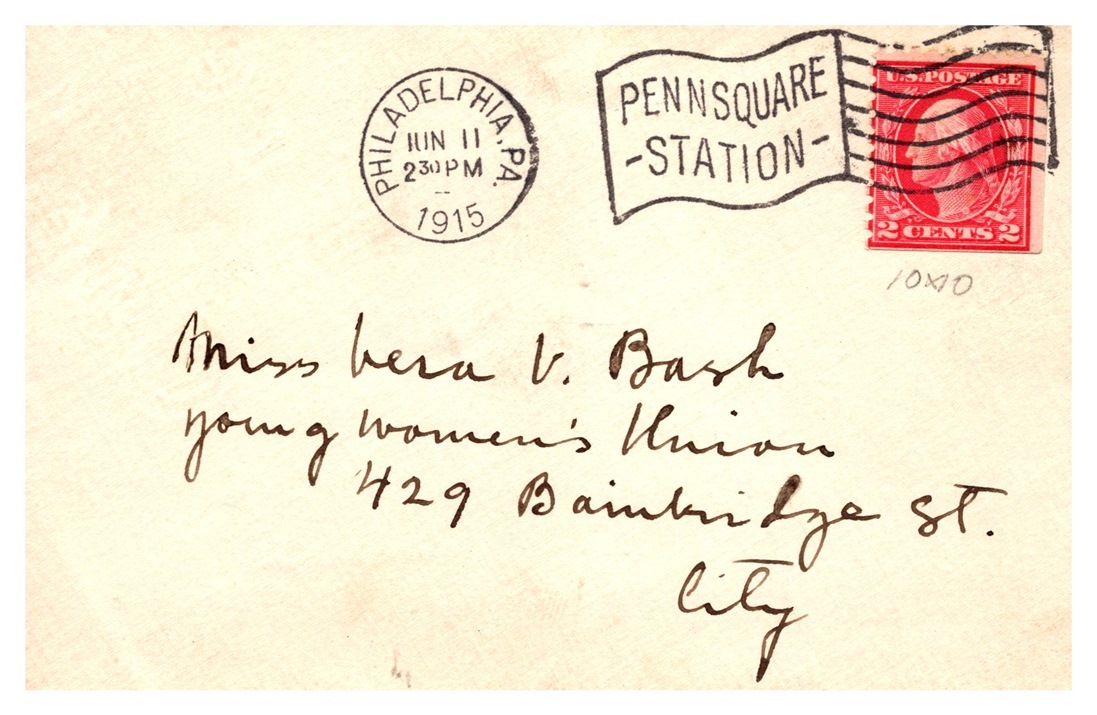 PHILADELPHIA, PA.
JUN 11
2 30 PM
1915
PENN SQUARE
- STATION -
U.S. POSTAGE
2 CENTS 2
10x10
Miss Vera V. Bash
Young Women's Union
429 Bainbridge St.
City